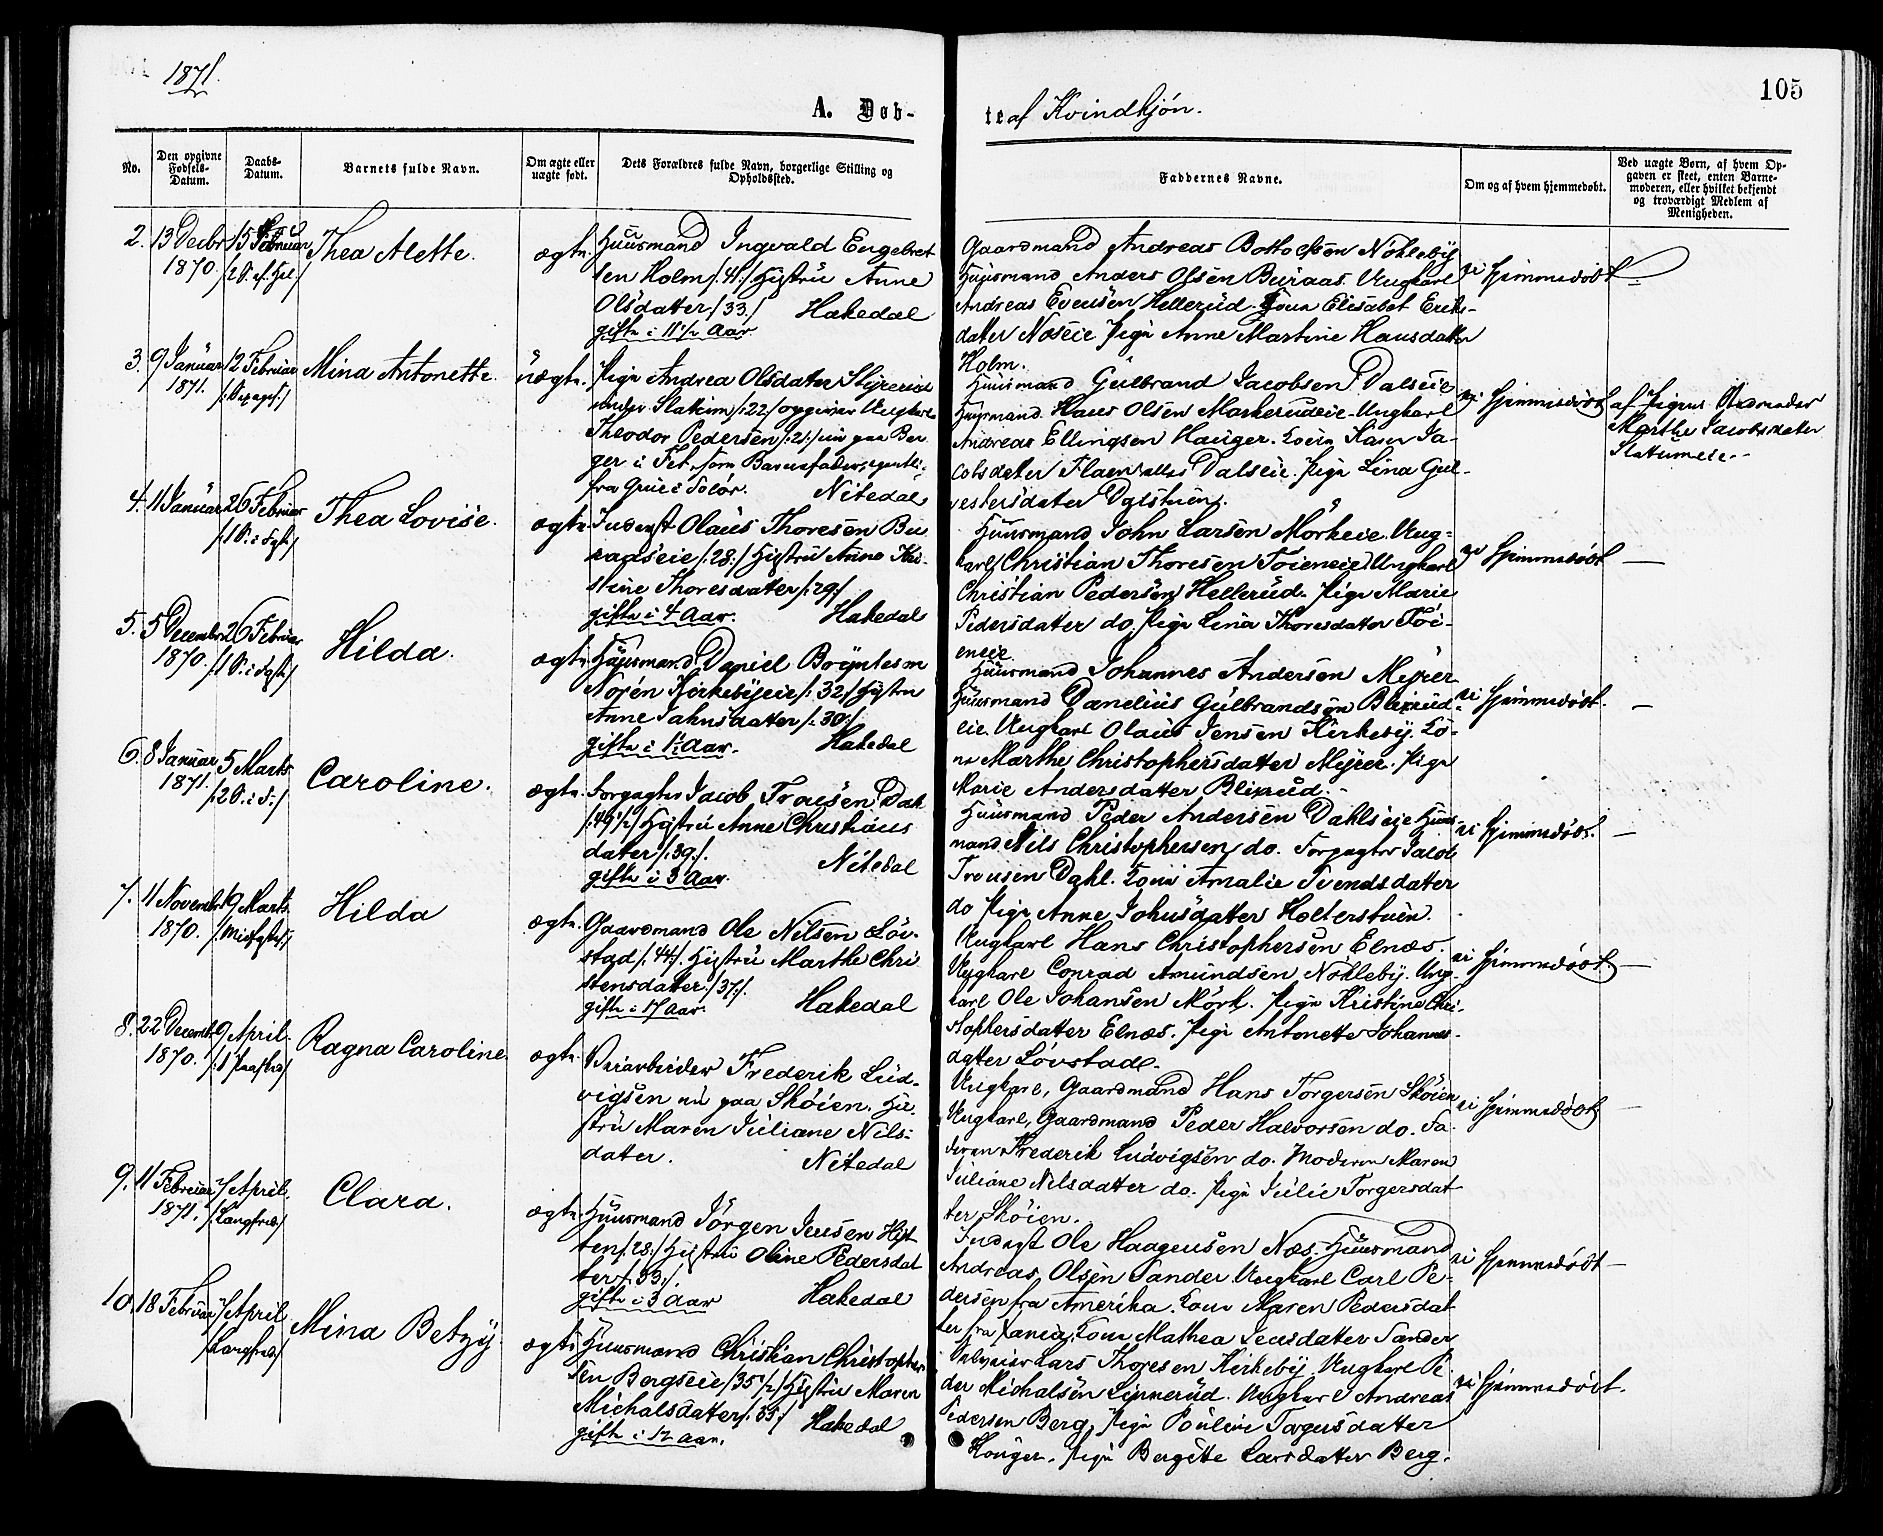 1871.
105
A. Døb-
te af Kvindkjøn.
No.
Den opgivne Fødsels-Datum.
Daabs-Datum.
Barnets fulde Navn.
Om ægte eller uægte født.
Dets Forældres fulde Navn, borgerlige Stilling og Opholdssted.
Faddernes Navne.
Om og af hvem hjemmedøbt.
Ved uægte Børn, af hvem Op-
gaven er skeet, enten Barne-
moderen, eller hvilket bekjendt
og troværdigt Medlem af
Menigheden.
2. 13 Decbr 1870.
15 Februar
Thea Alette.
ægte
Huusmand Ingvald Engebret
sen Holm /:41:/ Hustru Anne
Olsdatter /:33:/ Hakedal
gifte i 11 1/2 Aar
Gaardmand Andreas Bottolfsen Nökleby
Huusmand Anders Olsen Buraas. Ungkarl
Andreas Evensen Hellerud. Kone Elisabet Eriks-
datter Noseie Pige Anne Martine Hansdatter
Holm.
ei hjemmedöbt
3. 9 Januar 1871.
12 Februar
Mina Antonette
üægte.
Pige Andrea Olsdater
under Slattum /:22:/ opgiver Ungkarl
Theodor Pedersen /:21:/ nu paa Ber
ger i Fet som Barnefader, egentl:
fra Grue i Solör. Nitedal
Huusmand Gulbrand Jacobsen Dalseie
Huusmand Hans Olsen Markerudeie. Ungkarl
Andreas Ellingsen Hauger. Kone Karen Ja-
cobsdater Dalseie. Pige Lina Gul-
Dalstuen.
ei hjemmedöbt
af Pigens
Marthe Jacobsdater
Slatumeie.
4. 11 Januar
26 Februar
Thea Lovise.
ægte
Inderst Olaus Thoresen Bu
raaseie /:28:/ Hustru Anne Kri-
stine Thoresdatter /:29:/
gifte i 4 Aar. Hakedal
Huusmand John Larsen Mörkeie. Ung-
karl Christian Thoresen Töieneie Ungkarl
Christian Pedersen Hellerud. Pige Marie
Pedersdatter do. Pige Lina Thoresdatter Töi-
eneie
ei hjemmedöbt
5. 5 Decembr 1870.
26 Februar
Hilda.
ægte
Huusmand Daniel
Norén Kirkebyeie /:32:/ Hustru
Anne Jahnsdatter /:30:/
gifte i Aar. Hakedal
Huusmand Johannes Andersen Myrer
Huusmand Danelius Gulbrandsen Blixrud-
eie. Ungkarl Olaus Jensen Kirkeby. Ko-
ne Marthe Christophersdatter Myrer. Pige
Marie Andersdatter Blixrud.
ei hjemmedöbt.
6. 8 Januar 1871.
5 Marts
/:2 S. i F:/
Caroline.
ægte.
Forpagter Jacob Trousen Dahl
/:49 1/2:/ Hustru Anne Christians
dater /:39:/. Nitedal
gifte i 3 Aar.
Huusmand Peder Andersen Dahlseie Huus-
mand Nils Christophersen do. Forpagter Jacob
Trousen Dahl. Kone Amalie Svendsdatter
do Pige Anne Johnsdatter Holterstuen.
ei hjemmedöbt.
7. 11 Novembr 1870.
19 Marts
Hilda
ægte.
Gaardmand Ole Nilsen Löv-
stad /:44:/. Hustru Marthe Chri
stensdatter /:37:/.
gifte i 17 Aar. Hakedal
Ungkarl Hans Christophersen Elnæs.
Ungkarl Conrad Amundsen Nökleby. Ung-
karl Ole Johansen Mörk. Pige Kristine Chri-
stophersdatter Elnæs. Pige Antonette Johannes-
datter Lövstad.
ei hjemmedöbt
8. 22 Decembr 1870.
9 April
Ragna Caroline
ægte.
Veiarbeider Frederik Lud-
vigsen nu paa Sköien. Hu-
stru Maren Juliane Nils-
dater. Nitedal
Ungkarl, Gaardmand Hans Torgersen Sköien
Ungkarl, Gaardmand Peder Halvorsen do. Fa-
deren Frederik Ludvigsen do. Moderen Maren
Juliane Nilsdatter do. Pige Julie Torgersdat
ter Sköien.
ei hjemmedöbt
9. 11 Februar 1871.
7 April.
/:Langfred:/
Clara.
ægte.
Huusmand Jörgen Jensen
/:28:/ Hustru Oline Pedersdat
ter /:33:/.
gifte i 3 Aar Hakedal
Inderst Ole Haagensen Næs. Huusmand
Andreas Olsen Sander Ungkarl Carl Pe-
dersen fra Amerika. Kone Maren Pedersdat
ter fra Kone Mathea Jensdatter Sander
ei hjemmedöbt
10. 18 Februar
7 April
/:Langfred:/
Mina Betzy.
ægte
Huusmand Christian Christopher
sen Bergseie /:35 1/2:/ Hustru Maren
Michalsdatter /:33:/ Hakedal
gifte i 12 Aar.
Lars Thoresen Kirkeby Ungkarl Pe
der Michalsen Linnerud. Ungkarl Andreas
Pedersen Berg, Pige Pouline Torgersdatter
Houger. Pige Bergitte Larsdatter Berg.
ei hjemmedöbt.